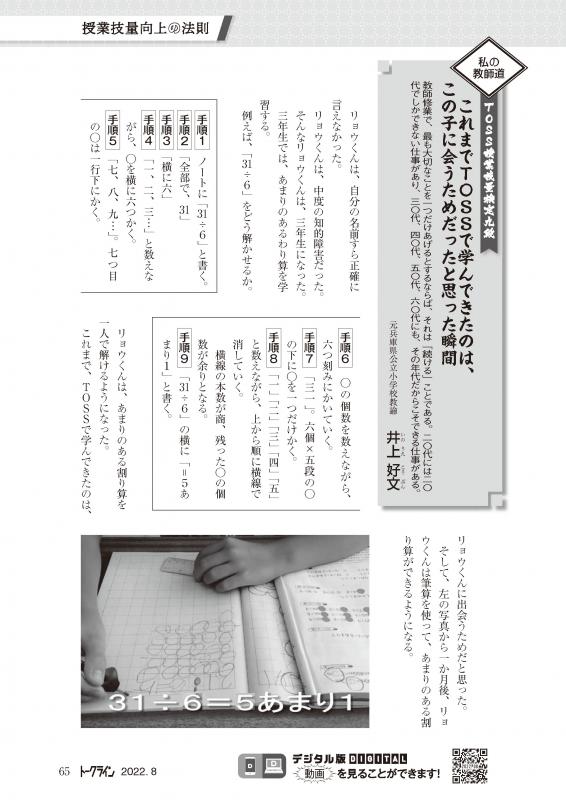 授業技量向上の法則
私の
教師道
TOSS授業技量検定九段
これまでTOSSで学んできたのは、
この子に会うためだったと思った瞬間
教師修業で、最も大切なことを一つだけあげるとするならば、それは「続ける」ことである。二〇代には二〇
代でしかできない仕事があり、三〇代、四〇代、五〇代、六〇代にも、その年代だからこそできる仕事がある。
元兵庫県公立小学校教諭
井上 好文
いのうえ こうぶん
リョウくんは、自分の名前すら正確に
言えなかった。
リョウくんは、中度の知的障害だった。
そんなリョウくんは、三年生になった。
三年生では、あまりのあるわり算を学
習する。
例えば、「31÷6」をどう解かせるか。
手順1 ノートに「31÷6」と書く。
手順2 「全部で、31」
手順3 「横に六」
手順4 「一、二、三…」と数えな
がら、〇を横に六つかく。
手順5 「七、八、九…」。七つ目
の〇は一行下にかく。
手順6 〇の個数を数えながら、
六つ刻みにかいていく。
手順7 「三一」。六個×五段の〇
の下に〇を一つだけかく。
手順8 「一」「二」「三」「四」「五」
と数えながら、上から順に横線で
消していく。
横線の本数が商、残った〇の個
数が余りとなる。
手順9 「31÷6」の横に「=5あ
まり1」と書く。
リョウくんは、あまりのある割り算を
一人で解けるようになった。
これまで、TOSSで学んできたのは、
リョウくんに出会うためだと思った。
そして、左の写真から一か月後、リョ
ウくんは筆算を使って、あまりのある割
り算ができるようになる。
31÷6=5あまり1
65 トークライン 2022. 8
デジタル版 DIGITAL
動画 を見ることができます!